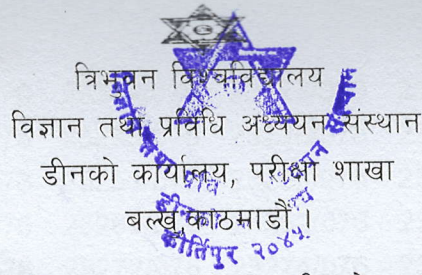 त्रिभुवन विश्वविद्यालय
विज्ञान तथा प्रविधि अध्ययन संस्थान
डीनको कार्यालय, परीक्षा शाखा
बल्खु,काठमाडौं ।
कीर्तिपुर २०४५